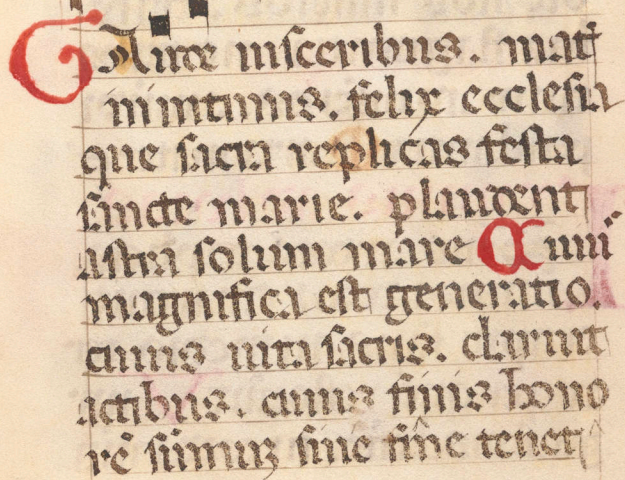 GAude uisceribus. mat̄
in intimis. felix ecclesia
que sacra replicas festa
sancte marie. plaudent
astra solum mare Cuiꝰ
magnifica est generatio.
cuius uita sacris. claruit
actibus. cuius finis hono
rē sūmuꝫ sine fine tenet